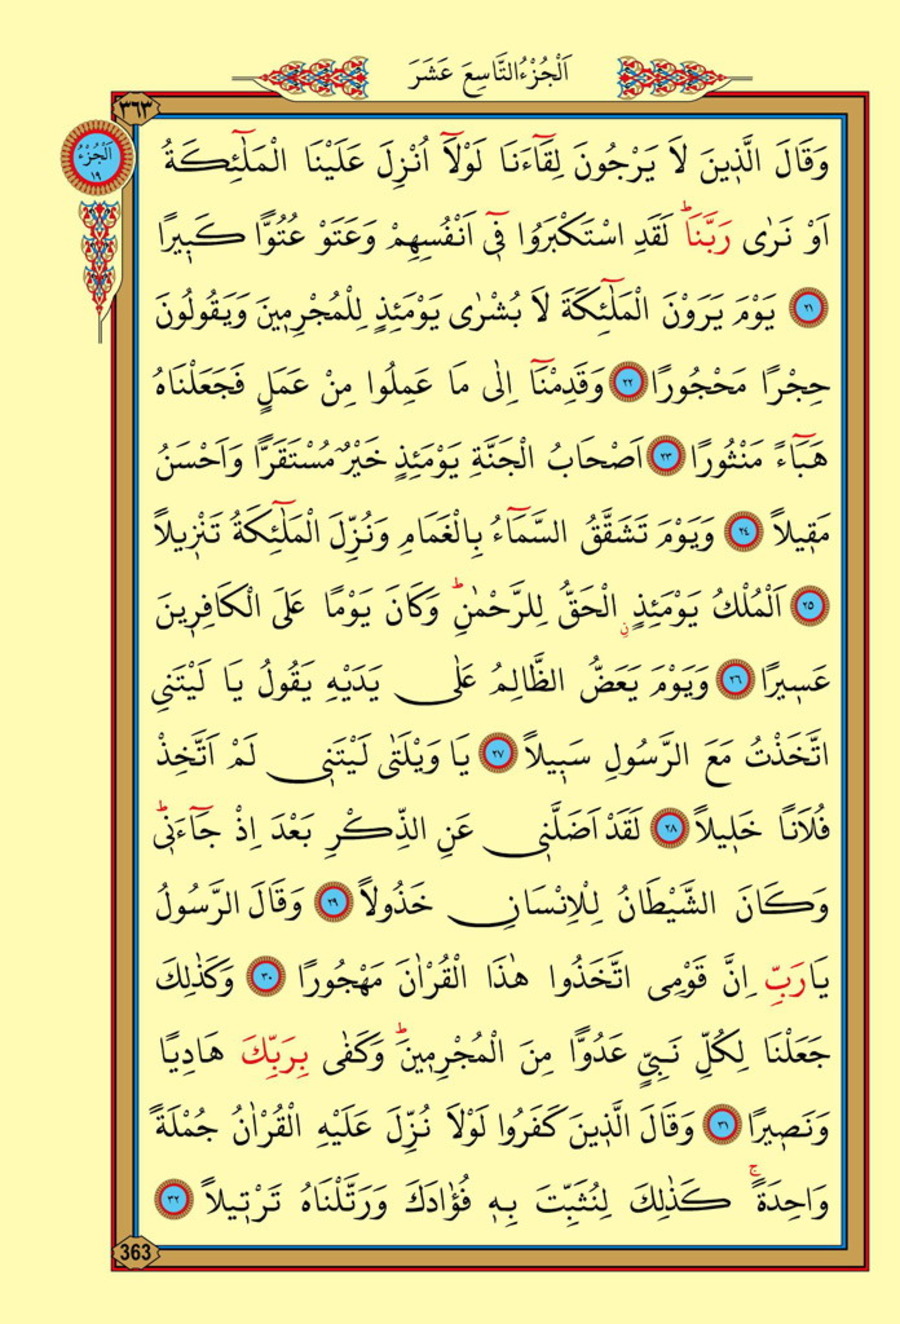 اَلْجُزْءُ التَّاسِعَ عَشَرَ
٣٦٣
اَلْجُزْءُ
١٩
وَقَالَ الَّذ۪ينَ لَا يَرْجُونَ لِقَٓاءَنَا لَوْلَٓا اُنْزِلَ عَلَيْنَا الْمَلٰٓئِكَةُ
اَوْ نَرٰى رَبَّنَاۜ لَقَدِ اسْتَكْبَرُوا ف۪ٓي اَنْفُسِهِمْ وَعَتَوْ عُتُوًّا كَب۪يرًا
﴿٢١﴾ يَوْمَ يَرَوْنَ الْمَلٰٓئِكَةَ لَا بُشْرٰى يَوْمَئِذٍ لِلْمُجْرِم۪ينَ وَيَقُولُونَ
حِجْرًا مَحْجُورًا ﴿٢٢﴾ وَقَدِمْنَٓا اِلٰى مَا عَمِلُوا مِنْ عَمَلٍ فَجَعَلْنَاهُ
هَبَٓاءً مَنْثُورًا ﴿٢٣﴾ اَصْحَابُ الْجَنَّةِ يَوْمَئِذٍ خَيْرٌ مُسْتَقَرًّا وَاَحْسَنُ
مَق۪يلًا ﴿٢٤﴾ وَيَوْمَ تَشَقَّقُ السَّمَٓاءُ بِالْغَمَامِ وَنُزِّلَ الْمَلٰٓئِكَةُ تَنْز۪يلًا
﴿٢٥﴾ اَلْمُلْكُ يَوْمَئِذٍۨ الْحَقُّ لِلرَّحْمٰنِۜ وَكَانَ يَوْمًا عَلَى الْكَافِر۪ينَ
عَس۪يرًا ﴿٢٦﴾ وَيَوْمَ يَعَضُّ الظَّالِمُ عَلٰى يَدَيْهِ يَقُولُ يَا لَيْتَنِي
اتَّخَذْتُ مَعَ الرَّسُولِ سَب۪يلًا ﴿٢٧﴾ يَا وَيْلَتٰى لَيْتَن۪ي لَمْ اَتَّخِذْ
فُلَانًا خَل۪يلًا ﴿٢٨﴾ لَقَدْ اَضَلَّن۪ي عَنِ الذِّكْرِ بَعْدَ اِذْ جَٓاءَن۪يۜ
وَكَانَ الشَّيْطَانُ لِلْاِنْسَانِ خَذُولًا ﴿٢٩﴾ وَقَالَ الرَّسُولُ
يَارَبِّ اِنَّ قَوْمِي اتَّخَذُوا هٰذَا الْقُرْاٰنَ مَهْجُورًا ﴿٣٠﴾ وَكَذٰلِكَ
جَعَلْنَا لِكُلِّ نَبِيٍّ عَدُوًّا مِنَ الْمُجْرِم۪ينَۜ وَكَفٰى بِرَبِّكَ هَادِيًا
وَنَص۪يرًا ﴿٣١﴾ وَقَالَ الَّذ۪ينَ كَفَرُوا لَوْلَا نُزِّلَ عَلَيْهِ الْقُرْاٰنُ جُمْلَةً
وَاحِدَةًۚ كَذٰلِكَ لِنُثَبِّتَ بِه۪ فُؤٰادَكَ وَرَتَّلْنَاهُ تَرْت۪يلًا ﴿٣٢﴾
363